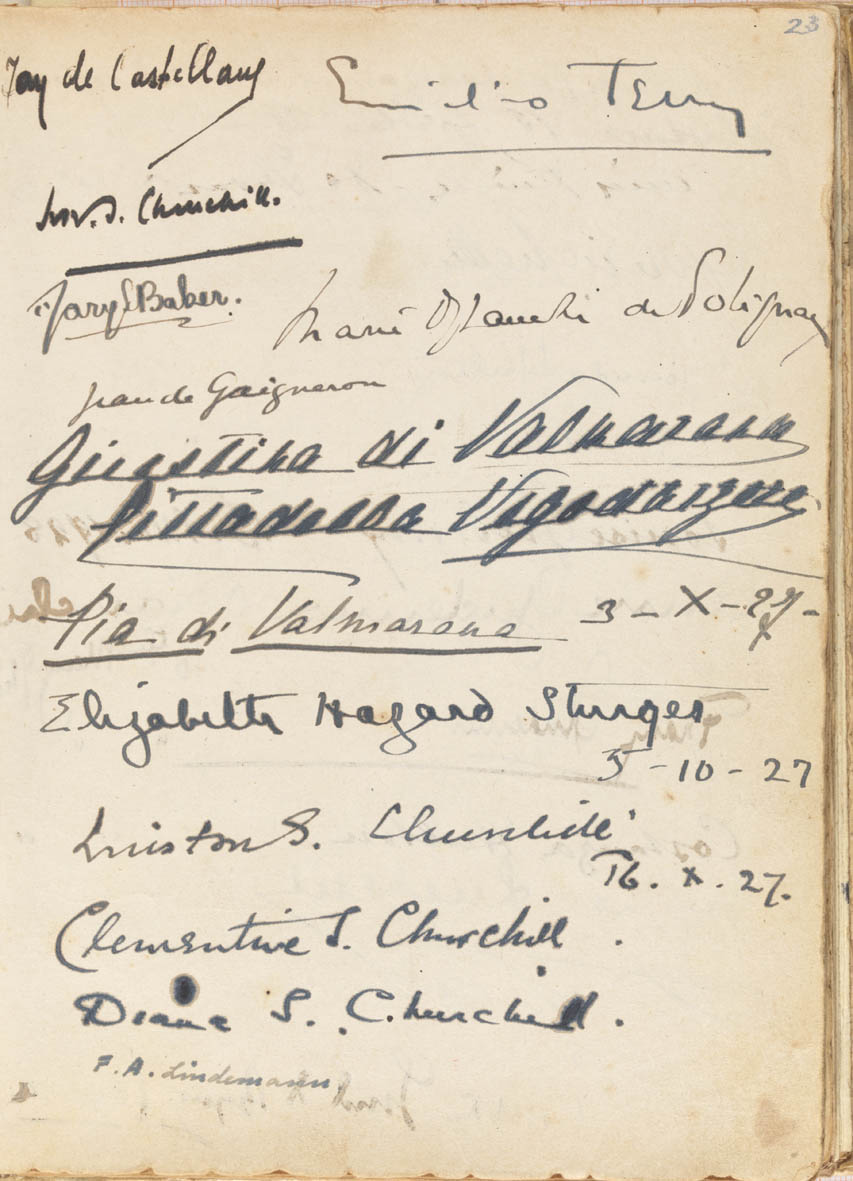 23
de Castellane
Emilio Terry
W. S. Churchill.
Mary S Baber.
Marie Blanche de Polignac
Jean de Gaigneron
Giustina di Valmarana
Cittadella Vigodarzere
Pia di Valmarana 3 - X - 27 -
Elizabeth Hazard Sturges
5 - 10 - 27
Winston S. Churchill
16. X. 27.
Clementine S. Churchill.
Diana S. Churchill.
F. A. Lindemann